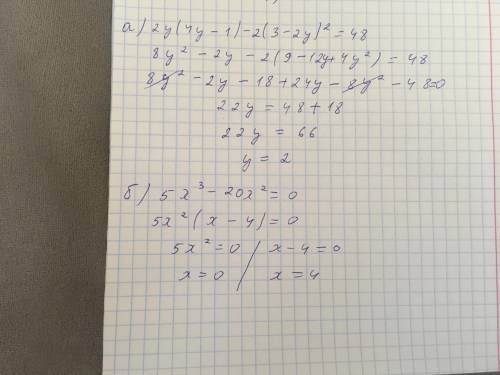 а) 2y(4y-1)-2(3-2y)²=48
8y²-2y-2(9-12y+4y²)=48
8y²-2y-18+24y-8y²-48=0
22y=48+18
22y=66
y=2
б) 5x³-20x²=0
5x²(x-4)=0
5x²=0 / x-4=0
x=0 / x=4